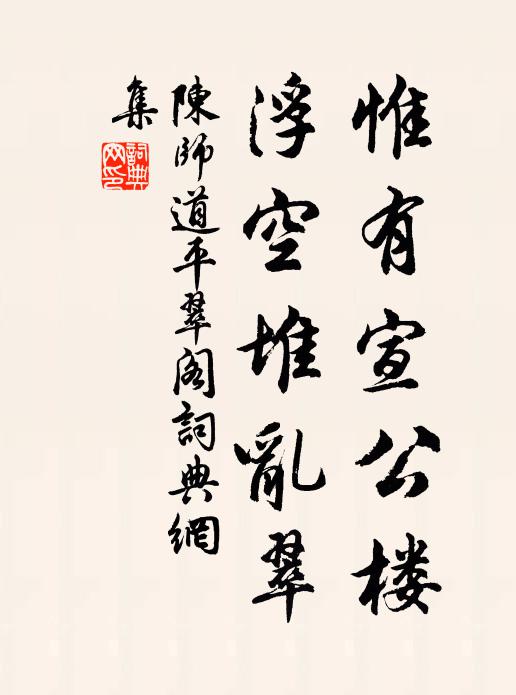 惟有宣公楼
浮空堆亂翠
陳師道平翠阁詞典網
集
詞典網印